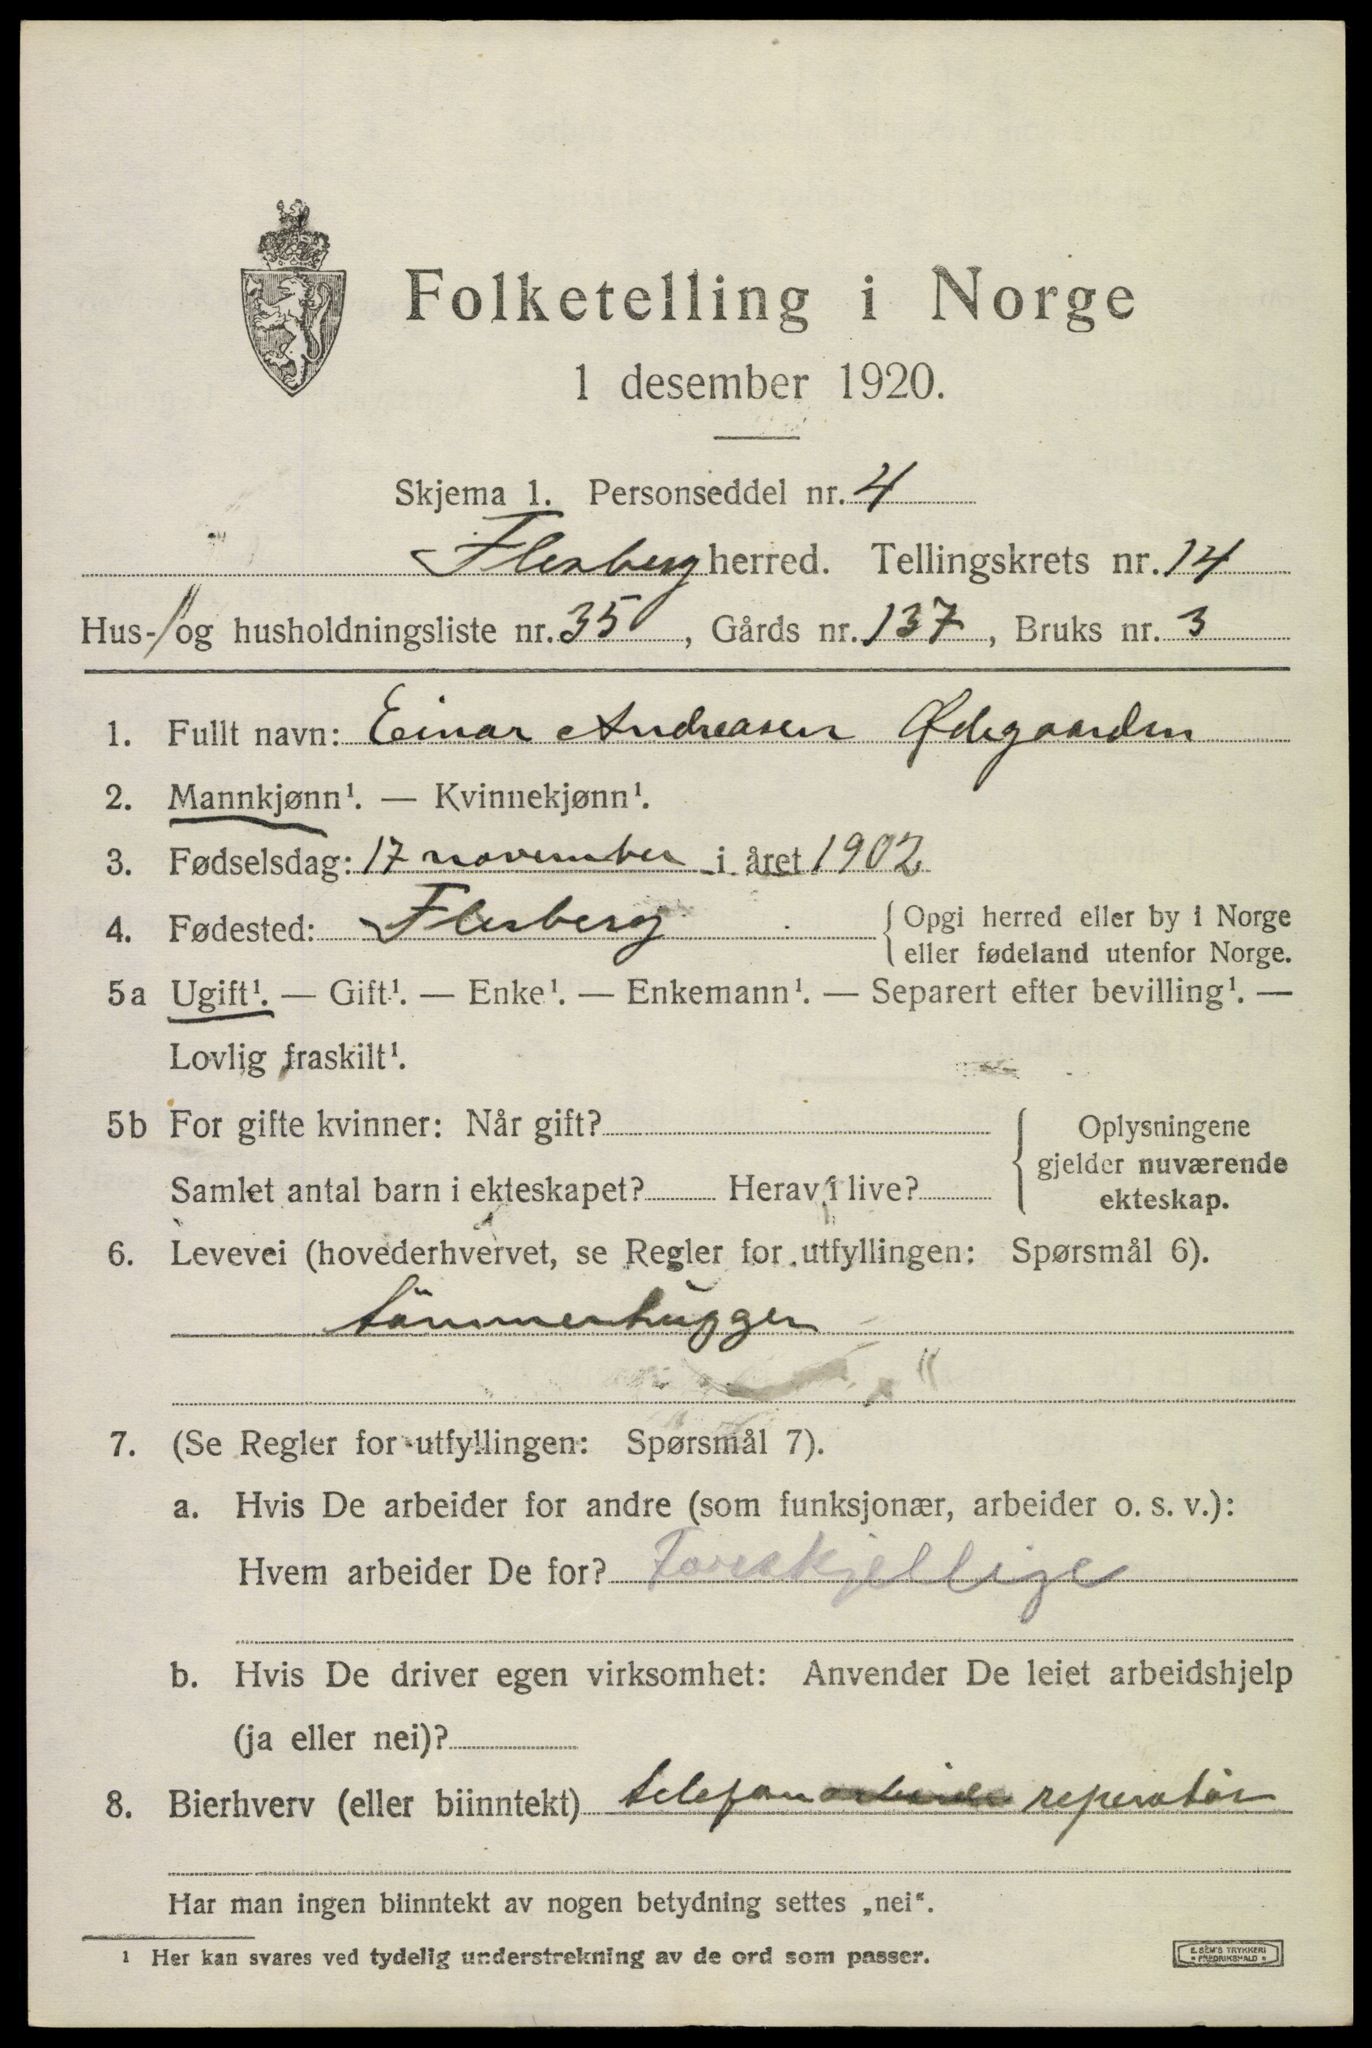 Folketelling i Norge
1 desember 1920.
Skjema 1. Personseddel nr. 4
Flesberg herred. Tellingskrets nr. 14
Hus- og husholdningsliste nr. 35, Gårds nr. 137, Bruks nr. 3
1. Fullt navn: Einar Andreasen Ødegaarden
2. Mannkjønn¹. — Kvinnekjønn¹.
3. Fødselsdag: 17 november i året 1902
4. Fødested: Flesberg { Opgi herred eller by i Norge
eller fødeland utenfor Norge.
5a Ugift¹. — Gift¹. — Enke¹. — Enkemann¹. — Separert efter bevilling¹. —
Lovlig fraskilt¹.
5b For gifte kvinner: Når gift?
Samlet antal barn i ekteskapet? Herav i live?
Oplysningene
gjelder nuværende
ekteskap.
6. Levevei (hovederhvervet, se Regler for utfyllingen: Spørsmål 6).
tömmerhugger
7. (Se Regler for utfyllingen: Spørsmål 7).
a. Hvis De arbeider for andre (som funksjonær, arbeider o. s. v.):
Hvem arbeider De for? Forskjellige
b. Hvis De driver egen virksomhet: Anvender De leiet arbeidshjelp
(ja eller nei)?
8. Bierhverv (eller biinntekt) telefon reperatör
Har man ingen biinntekt av nogen betydning settes „nei“.
¹ Her kan svares ved tydelig understrekning av de ord som passer.
E. SEM'S TRYKKERI
FREDRIKSHALD